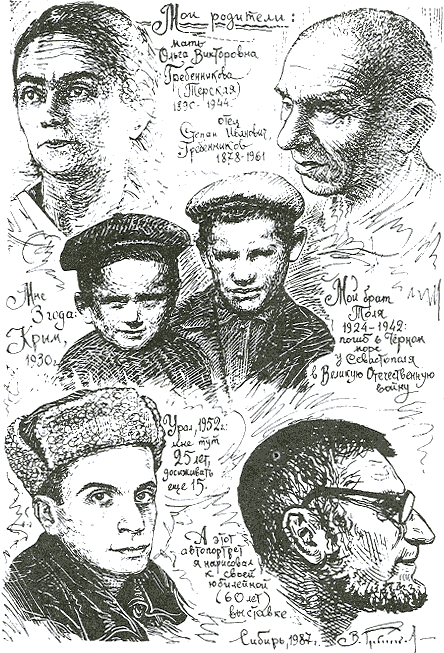 Мои родители:
мать
Ольга Викторовна
Гребенникова
(Терская)
1890-1944.
отец
Степан Иванович
Гребенников
1878-1961
Мне
3 года:
Крым,
1930г.
Мой брат
Толя
1924-1942:
погиб в Чёрном
море
у Севастополя
в Великую Отечественную
войну
Урал, 1952г.:
мне тут
25 лет,
досиживать
еще 15.
А этот
автопортрет
я нарисовал
к своей
юбилейной
(60 лет)
выставке.
Сибирь, 1987г.